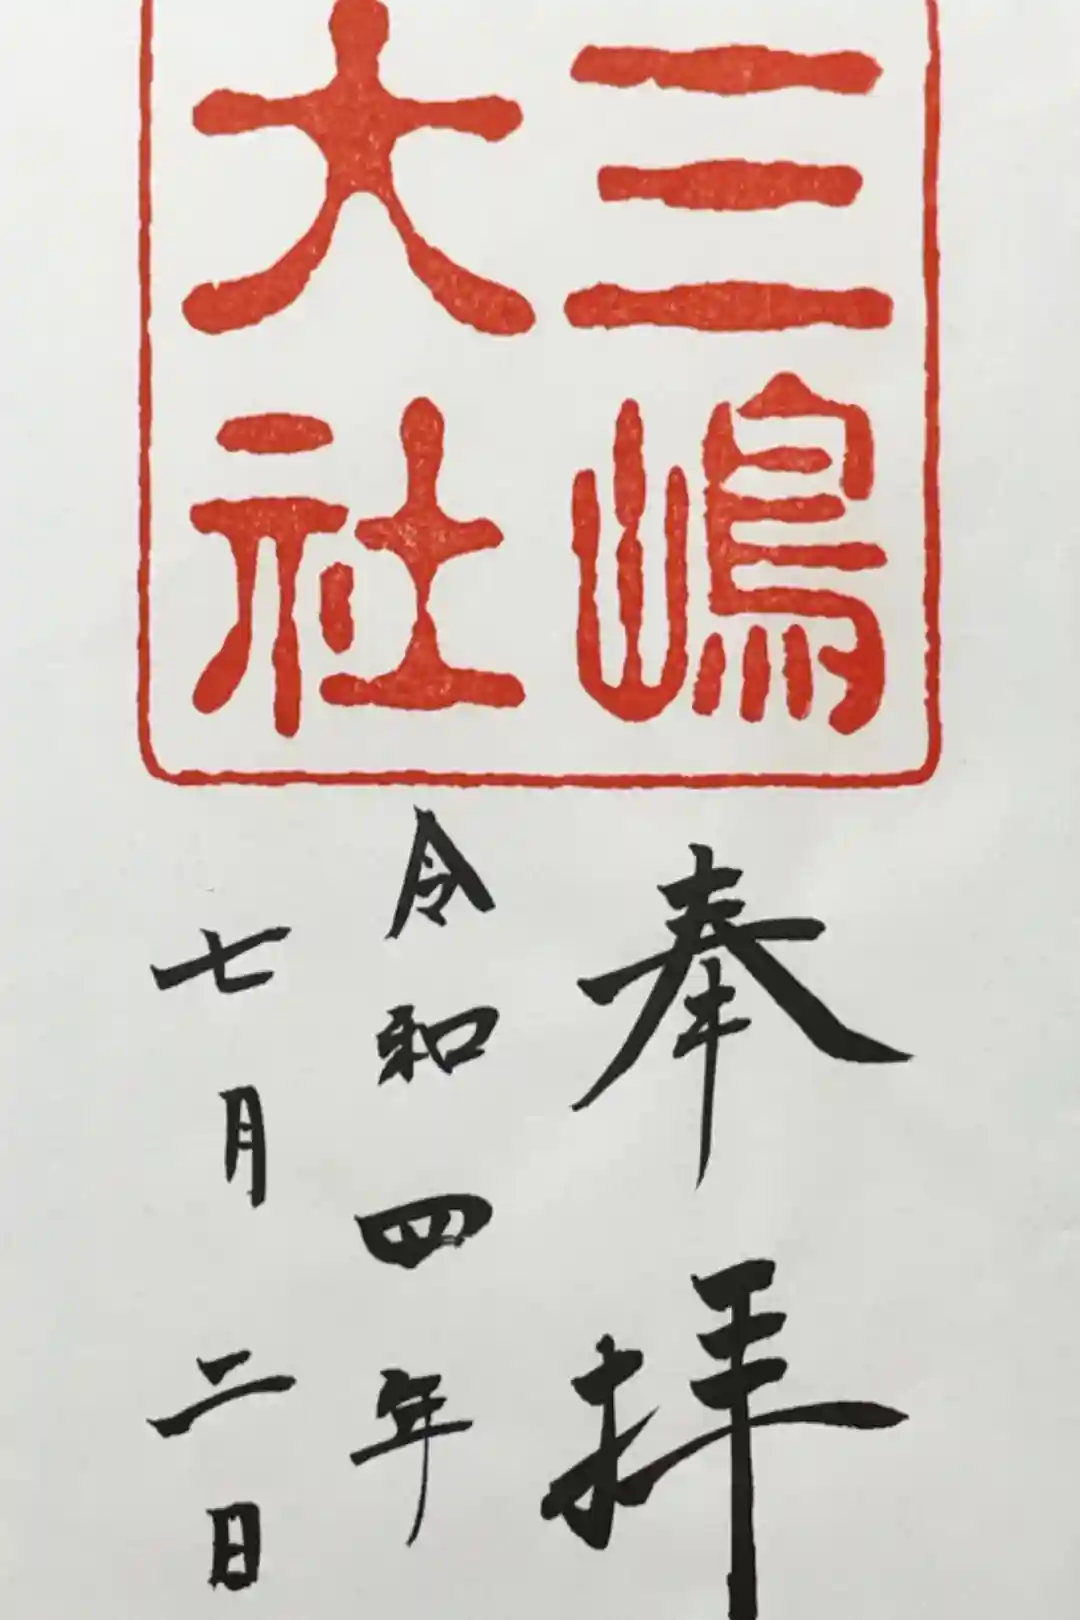 三嶋
大社
奉拝
令和四年
七月二日